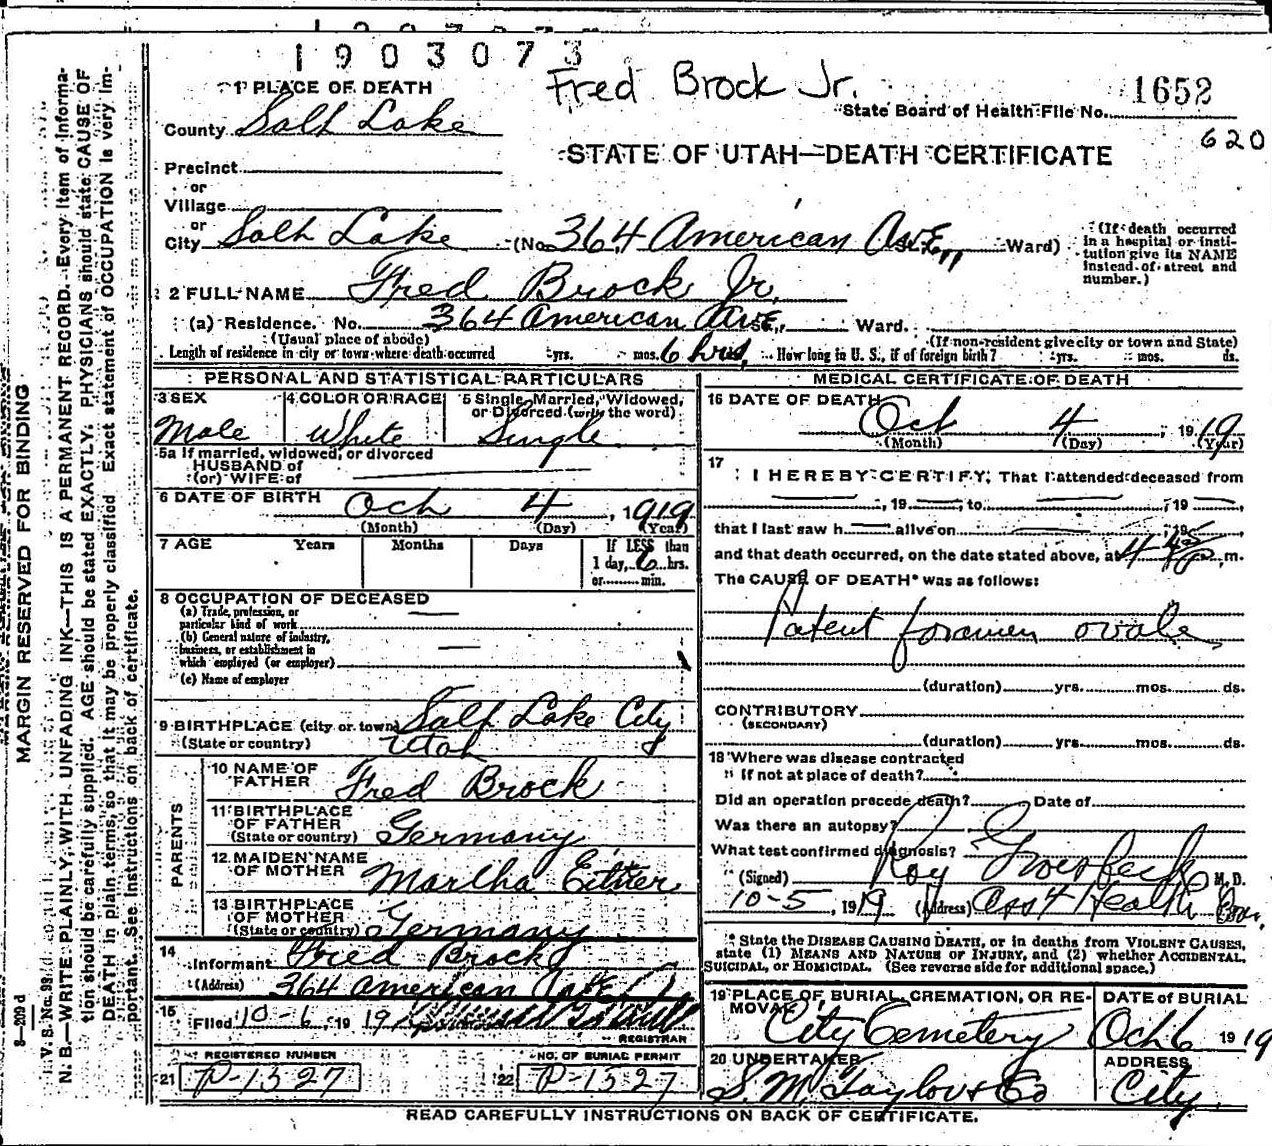 1903073
Fred Brock Jr.
1652
State Board of Health File No.
620
1 PLACE OF DEATH
County Salt Lake
STATE OF UTAH—DEATH CERTIFICATE
Precinct
or
Village
or
City Salt Lake (No. 364 American Ave, Ward)
(If death occurred in a hospital or institution give its NAME instead of street and number.)
2 FULL NAME Fred Brock Jr.
(a) Residence. No. 364 American Ave St., Ward.
(Usual place of abode) (If non-resident give city or town and State)
Length of residence in city or town where death occurred yrs. mos. 6 hrs. How long in U. S., if of foreign birth? yrs. mos. ds.
PERSONAL AND STATISTICAL PARTICULARS
3 SEX 4 COLOR OR RACE 5 Single, Married, Widowed, or Divorced (write the word)
Male White Single
5a If married, widowed, or divorced
HUSBAND of
(or) WIFE of
6 DATE OF BIRTH Oct 4, 1919
(Month) (Day) (Year)
7 AGE Years Months Days If LESS than
1 day, 6 hrs.
or min.
8 OCCUPATION OF DECEASED
(a) Trade, profession, or
particular kind of work
(b) General nature of industry,
business, or establishment in
which employed (or employer)
(c) Name of employer
9 BIRTHPLACE (city or town) Salt Lake City
(State or country) Utah
PARENTS
10 NAME OF FATHER Fred Brock
11 BIRTHPLACE OF FATHER
(State or country) Germany
12 MAIDEN NAME OF MOTHER Martha Eitner
13 BIRTHPLACE OF MOTHER
(State or country) Germany
14 Informant Fred Brock
(Address) 364 American Ave
15 Filed 10-6, 1919
REGISTRAR
REGISTERED NUMBER NO. OF BURIAL PERMIT
21 P-1527 22 P-1527
MEDICAL CERTIFICATE OF DEATH
16 DATE OF DEATH Oct 4, 1919
(Month) (Day) (Year)
17 I HEREBY CERTIFY, That I attended deceased from
, 19 , to , 19 ,
that I last saw h alive on , 19 ,
and that death occurred, on the date stated above, at 4 m.
The CAUSE OF DEATH* was as follows:
Patent foramen ovale
(duration) yrs. mos. ds.
CONTRIBUTORY
(SECONDARY)
(duration) yrs. mos. ds.
18 Where was disease contracted
If not at place of death?
Did an operation precede death? Date of
Was there an autopsy?
What test confirmed diagnosis?
(Signed) Roy Groesbeck M. D.
10-5, 1919 (Address) Asst Health Com.
* State the DISEASE CAUSING DEATH, or in deaths from VIOLENT CAUSES,
state (1) MEANS AND NATURE OF INJURY, and (2) whether ACCIDENTAL,
SUICIDAL, or HOMICIDAL. (See reverse side for additional space.)
19 PLACE OF BURIAL, CREMATION, OR REMOVAL DATE OF BURIAL
City Cemetery Oct 6 1919
20 UNDERTAKER ADDRESS
S. M. Taylor & Co City
READ CAREFULLY INSTRUCTIONS ON BACK OF CERTIFICATE.
MARGIN RESERVED FOR BINDING
8—209 d
V. S. No. 99
N. B.—WRITE PLAINLY, WITH UNFADING INK—THIS IS A PERMANENT RECORD. Every item of informa-
tion should be carefully supplied. AGE should be stated EXACTLY. PHYSICIANS should state CAUSE OF
DEATH in plain terms, so that it may be properly classified. Exact statement of OCCUPATION is very im-
portant. See instructions on back of certificate.